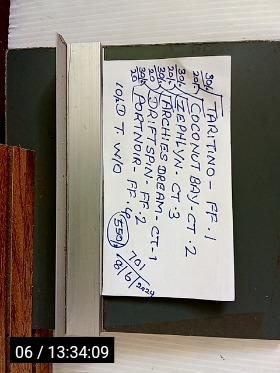 30% TARITINO - FF. 1
20% COCONUT BAY - CT. 2
30% ZEPHLYN - CT. 3
20% ARCHIES DREAM - CT. 1
30% DRIFTSPIN - FF. 2
20 PORTNOIR - FF. 6
10KD T. W/O
550/-
701
8/6/2024
06 / 13:34:09